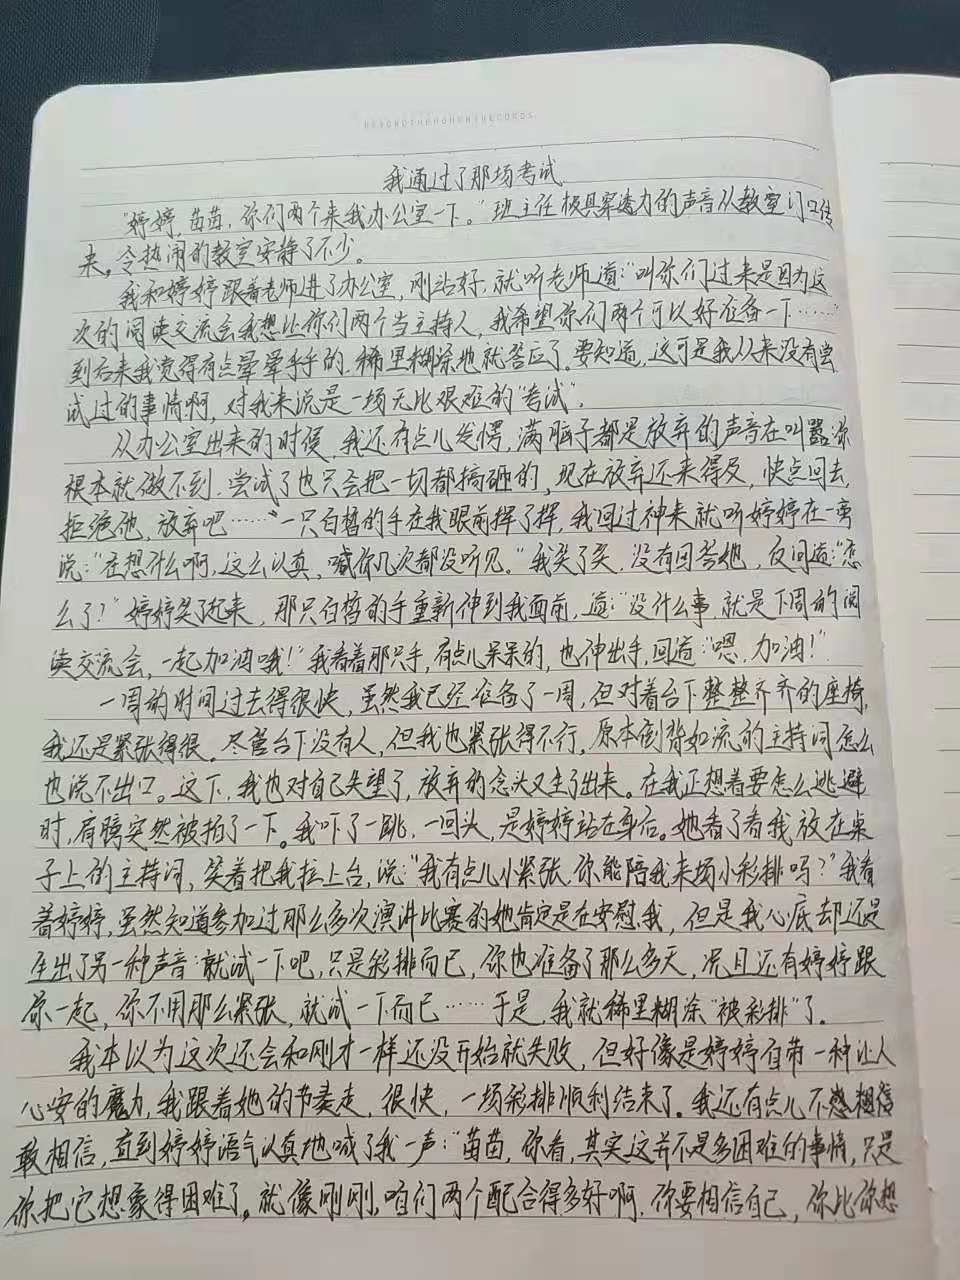 我通过了那场考试
"婷婷,苗苗,你们两个来我办公室一下。"班主任极具穿透力的声音从教室门口传
来。令热闹的教室安静了不少。
我和婷婷跟着老师进了办公室,刚站好,就听老师道:"叫你们过来是因为这
次的阅读交流会我想让你们两个当主持人,我希望你们两个可以好准备一下……"
到后来我觉得有点晕晕乎乎的,稀里糊涂地就答应了。要知道,这可是我从来没有尝
试过的事情啊,对我来说是一场无比艰难的"考试"。
从办公室出来的时候,我还有点儿发愣,满脑子都是放弃的声音在叫嚣:"你
根本就做不到,尝试了也只会把一切都搞砸的,现在放弃还来得及,快点回去,
拒绝他,放弃吧……"一只白皙的手在我眼前挥了挥,我回过神来就听婷婷在一旁
说:"在想什么啊,这么认真,喊你几次都没听见。"我笑了笑,没有回答她,反问道:"怎
么了?"婷婷笑了起来,那只白皙的手重新伸到我面前,道:"没什么事,就是下周的阅
读交流会,一起加油哦!"我看着那只手,有点儿呆呆的,也伸出手,回道:"嗯,加油!"
一周的时间过去得很快,虽然我已经准备了一周,但对着台下整整齐齐的座椅,
我还是紧张得很。尽管台下没有人,但我也紧张得不行,原本倒背如流的主持词怎么
也说不出口。这下,我也对自己失望了,放弃的念头又生了出来。在我正想着要怎么逃避
时,肩膀突然被拍了一下。我吓了一跳,一回头,是婷婷站在身后。她看了看我放在桌
子上的主持词,笑着把我拉上台,说:"我有点儿小紧张,你能陪我来场小彩排吗?"我看
着婷婷,虽然知道参加过那么多次演讲比赛的她肯定是在安慰我,但是我心底却还是
生出了另一种声音:就试一下吧,只是彩排而已,你也准备了那么多天,况且还有婷婷跟
你一起,你不用那么紧张,就试一下而已……于是,我就稀里糊涂"被彩排"了。
我本以为这次还会和刚才一样还没开始就失败,但好像是婷婷自带一种让人
心安的魔力,我跟着她的节奏走,很快,一场彩排顺利结束了。我还有点儿不
敢相信,直到婷婷语气认真地喊了我一声:"苗苗,你看,其实这并不是多困难的事情,只是
你把它想象得困难了。就像刚刚,咱们两个配合得多好啊,你要相信自己,你比你想